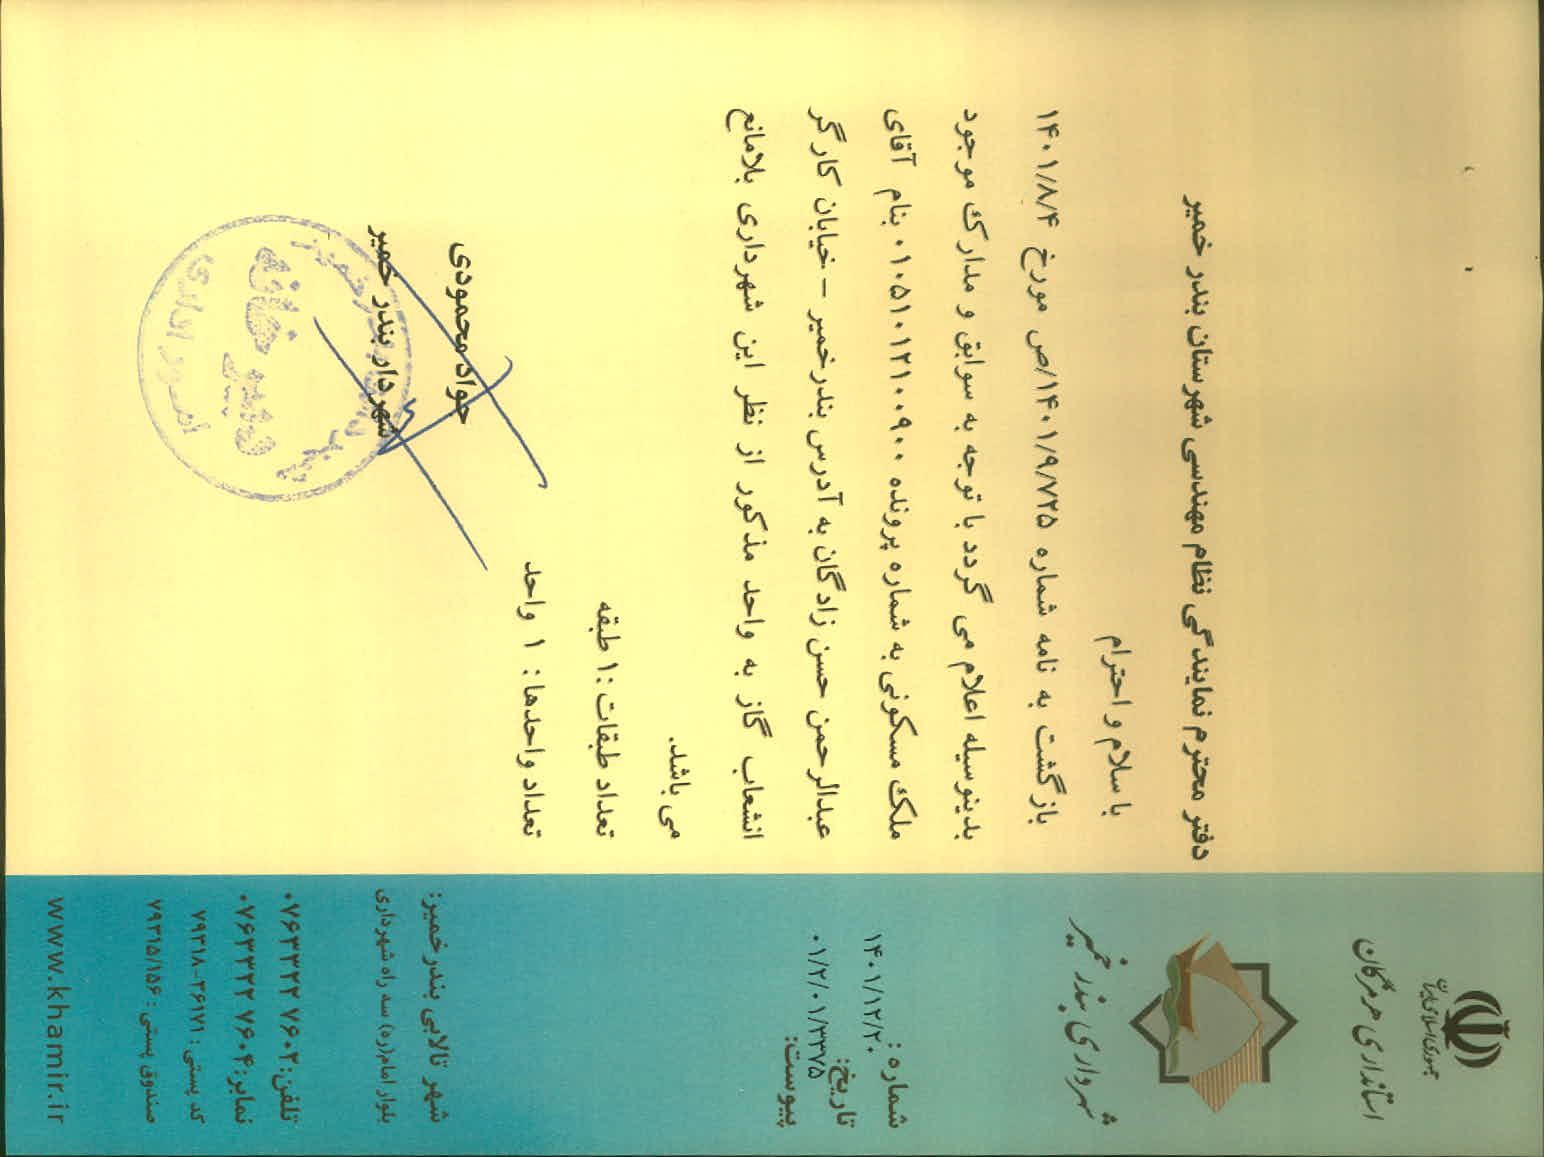 جمهوری اسلامی ایران
استانداری هرمزگان
شهرداری بندر خمیر
شماره :
۱۴۰۱/۱۲/۲۰
تاریخ:
۰۱/۲/۰۱/۳۳۷۵
پیوست:
شهر تالابی بندر خمیر:
بلوار امام(ره) سه راه شهرداری
تلفن: ۰۷۶۳۳۲۲۷۶۰۲
نمابر: ۰۷۶۳۳۲۲۷۶۰۴
کد پستی : ۳۶۱۷۱-۷۹۳۱۸
صندوق پستی : ۷۹۳۱۵/۱۵۶
www.khamir.ir
دفتر محترم نمایندگی نظام مهندسی شهرستان بندر خمیر
با سلام و احترام
بازگشت به نامه شماره ۱۴۰۱/۹/۷۲۵/ص مورخ ۱۴۰۱/۸/۴
بدینوسیله اعلام می گردد با توجه به سوابق و مدارک موجود
ملک مسکونی به شماره پرونده ۰۱۰۵۱۰۱۲۱۰۰۹۰۰ بنام آقای
عبدالرحمن حسن زادگان به آدرس بندرخمیر – خیابان کارگر
انشعاب گاز به واحد مذکور از نظر این شهرداری بلامانع
می باشد.
تعداد طبقات :۱ طبقه
تعداد واحدها : ۱ واحد
جواد محمودی
شهردار بندر خمیر
دبیر خانه
امور اداری